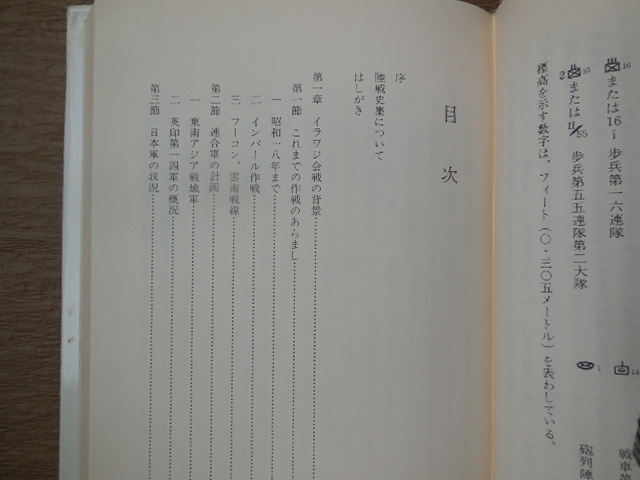 16または16i 歩兵第一六連隊
2 55またはⅡ/55 歩兵第五五連隊第二大隊
標高を示す数字は、フィート(〇・三〇五メートル)を表わしている。
1 砲列陣
14 戦車第
目次
序
陸戦史集について
はしがき
第一章 イラワジ会戦の背景
第一節 これまでの作戦のあらまし
一 昭和一八年まで
二 インパール作戦
三 フーコン、雲南戦線
第二節 連合軍の計画
一 東南アジア戦域軍
二 英印第一四軍の概況
第三節 日本軍の状況